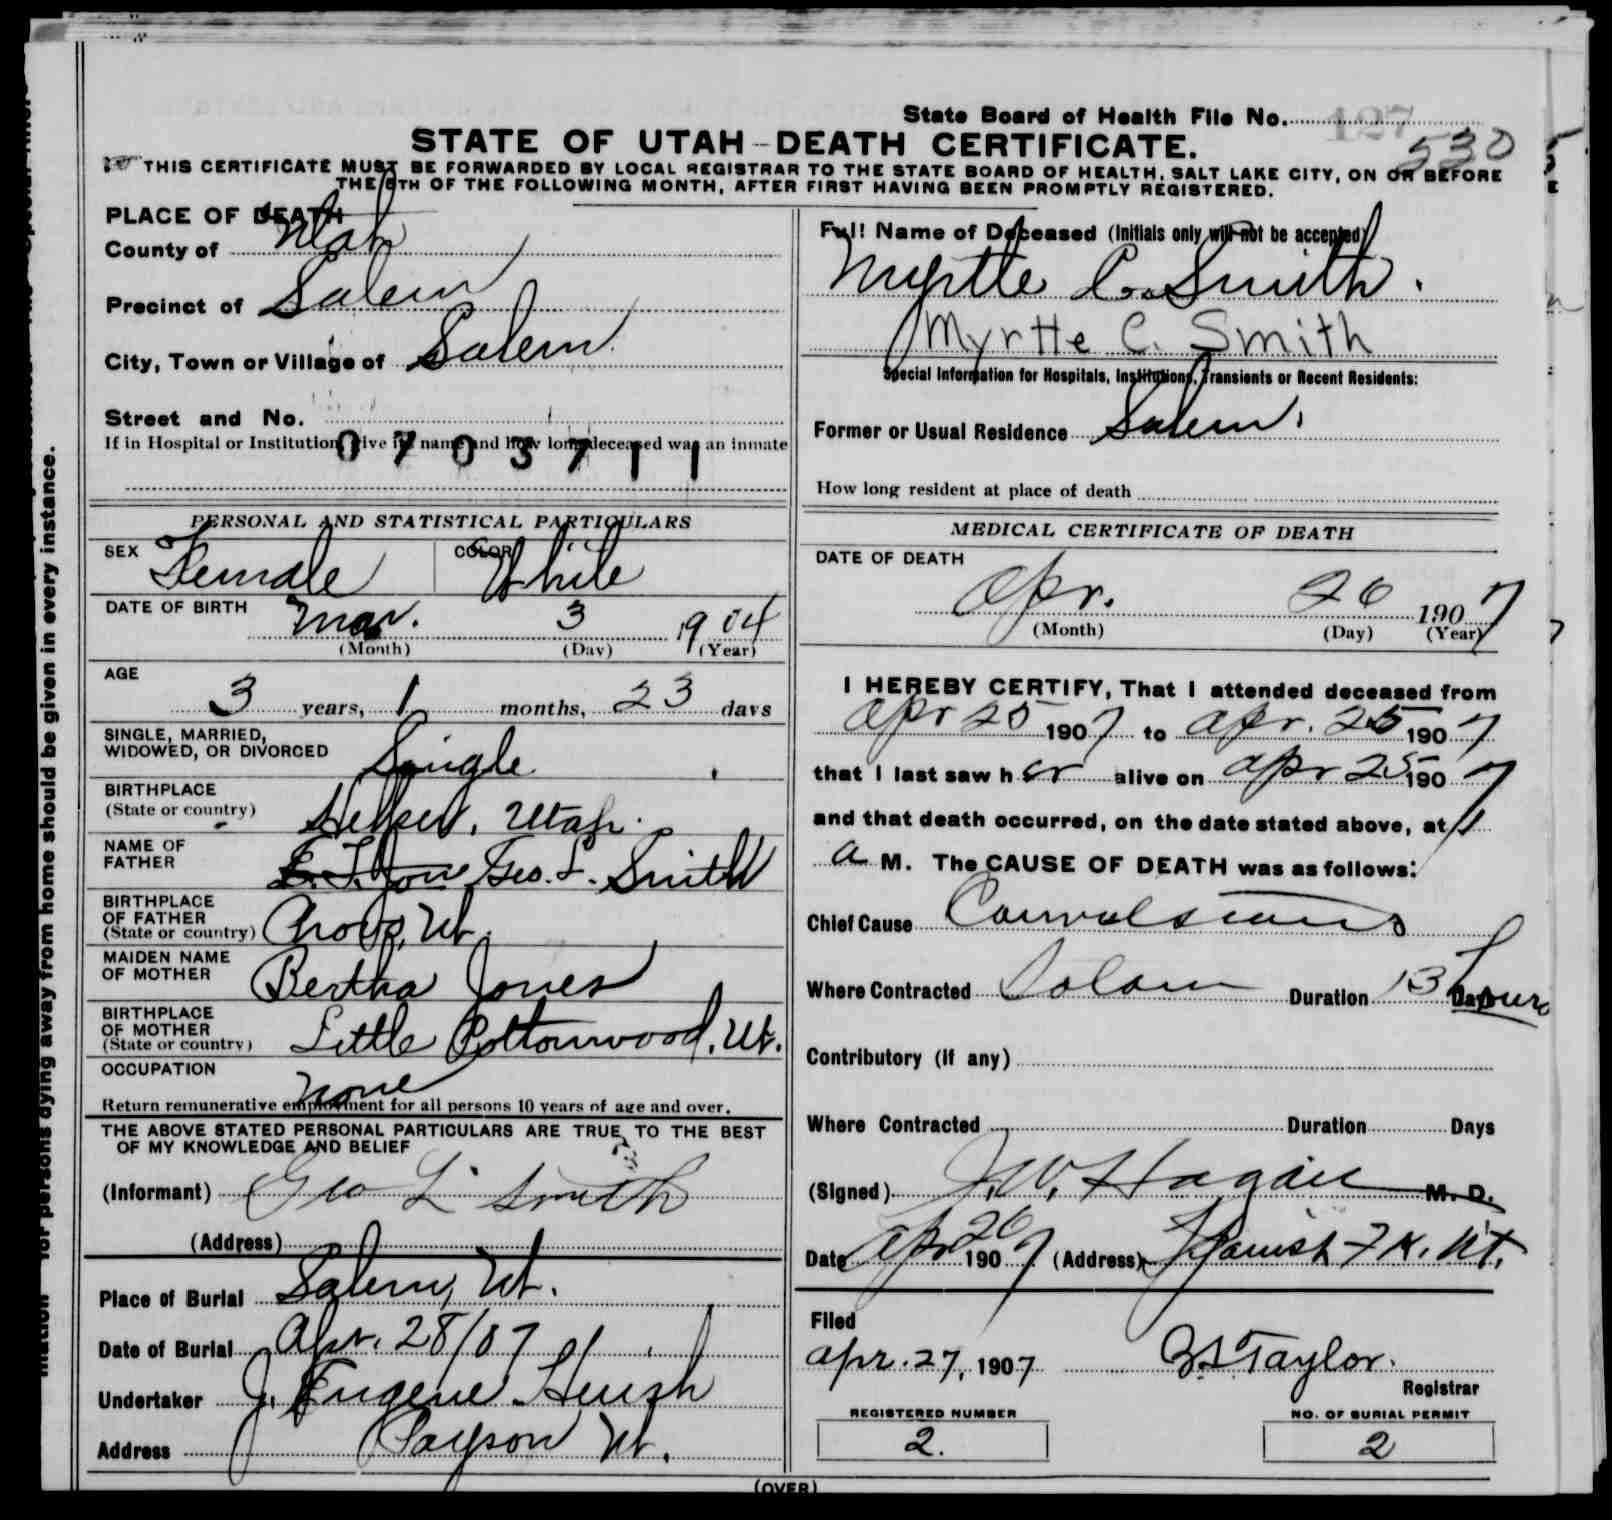 State Board of Health File No. 127
530
STATE OF UTAH—DEATH CERTIFICATE.
THIS CERTIFICATE MUST BE FORWARDED BY LOCAL REGISTRAR TO THE STATE BOARD OF HEALTH, SALT LAKE CITY, ON OR BEFORE
THE 5TH OF THE FOLLOWING MONTH, AFTER FIRST HAVING BEEN PROMPTLY REGISTERED.
PLACE OF DEATH
County of Utah
Precinct of Salem
City, Town or Village of Salem
Street and No.
If in Hospital or Institution, give its name and how long deceased was an inmate
0703711
PERSONAL AND STATISTICAL PARTICULARS
SEX Female COLOR White
DATE OF BIRTH Mar. 3 1904
(Month) (Day) (Year)
AGE
3 years, 1 months, 23 days
SINGLE, MARRIED,
WIDOWED, OR DIVORCED Single
BIRTHPLACE
(State or country) Helper, Utah.
NAME OF
FATHER Geo. L. Smith
BIRTHPLACE
OF FATHER
(State or country) Provo, Ut.
MAIDEN NAME
OF MOTHER Bertha Jones
BIRTHPLACE
OF MOTHER
(State or country) Little Cottonwood, Ut.
OCCUPATION
None
Return remunerative employment for all persons 10 years of age and over.
THE ABOVE STATED PERSONAL PARTICULARS ARE TRUE TO THE BEST
OF MY KNOWLEDGE AND BELIEF
(Informant) Geo L Smith
(Address)
Place of Burial Salem, Ut.
Date of Burial Apr. 28/07
Undertaker J. Eugene Huish
Address Payson Ut.
Full Name of Deceased (Initials only will not be accepted)
Myrtle C. Smith.
Myrtle C. Smith
Special Information for Hospitals, Institutions, Transients or Recent Residents:
Former or Usual Residence Salem.
How long resident at place of death
MEDICAL CERTIFICATE OF DEATH
DATE OF DEATH
Apr. 26 1907
(Month) (Day) (Year)
I HEREBY CERTIFY, That I attended deceased from
Apr 25 1907 to Apr. 25 1907
that I last saw her alive on Apr 25 1907
and that death occurred, on the date stated above, at 1
a M. The CAUSE OF DEATH was as follows:
Chief Cause Convulsions
Where Contracted Salem Duration 13 Days hours
Contributory (if any)
Where Contracted Duration Days
(Signed) J. W. Hagan M. D.
Date Apr 26 1907 (Address) Spanish FK. Ut.
Filed
Apr. 27, 1907 Taylor.
Registrar
REGISTERED NUMBER
2.
NO. OF BURIAL PERMIT
2
(OVER)
for persons dying away from home should be given in every instance.